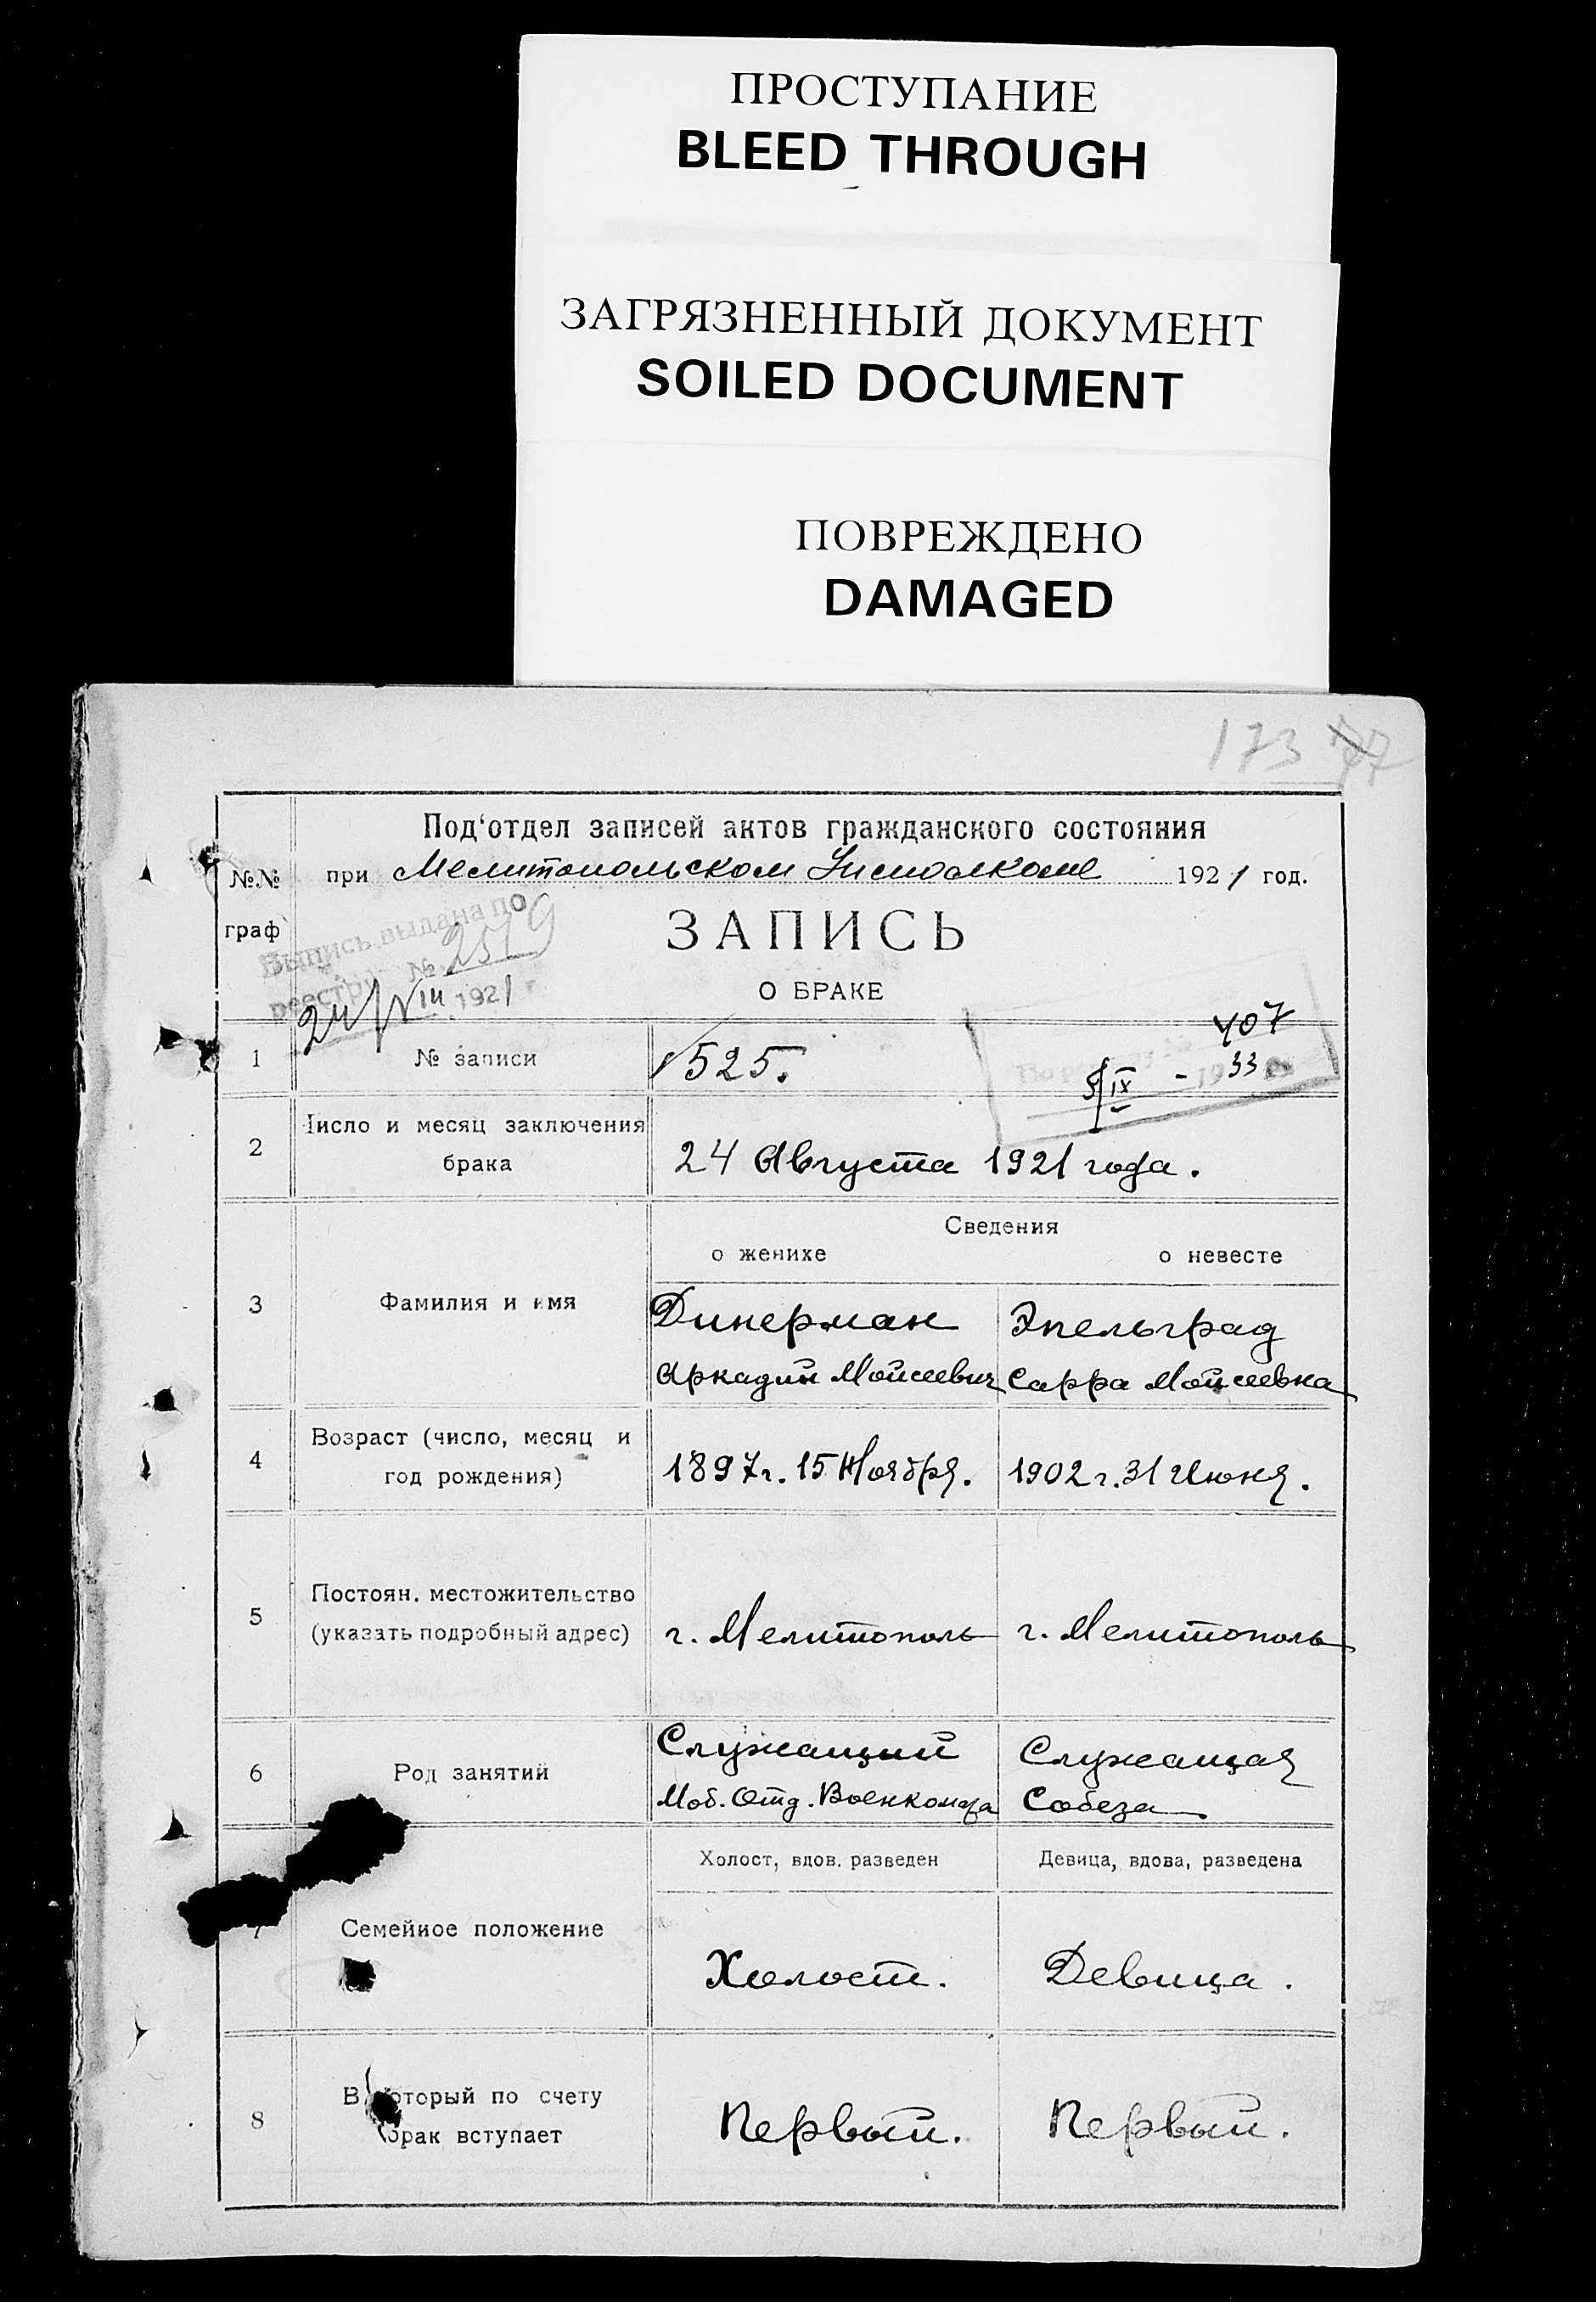 ПРОСТУПАНИЕ
BLEED THROUGH
ЗАГРЯЗНЕННЫЙ ДОКУМЕНТ
SOILED DOCUMENT
ПОВРЕЖДЕНО
DAMAGED
173
Под‘отдел записей актов гражданского состояния
№№ граф
при Мелитопольском Исполкоме 1921 год.
Выпись выдана по
реестру № 2579
24/VIII 1921 г
ЗАПИСЬ
О БРАКЕ
407
1 № записи 525.
5/IX - 1933
2 Число и месяц заключения
брака
24 Августа 1921 года.
Сведения
о женихе о невесте
3 Фамилия и имя
Динерман Эпельград
Аркадий Мойсеевич Сарра Мойсеевна
4 Возраст (число, месяц и
год рождения)
1897г. 15 Ноября. 1902г. 31 Июня.
5 Постоян. местожительство
(указать подробный адрес) г. Мелитополь г. Мелитополь
6 Род занятий
Служащий Служащая
Моб. Отд. Военкомата Собеза
Холост, вдов, разведен Девица, вдова, разведена
7 Семейное положение
Холост. Девица.
8 В который по счету
брак вступает
Первый. Первый.